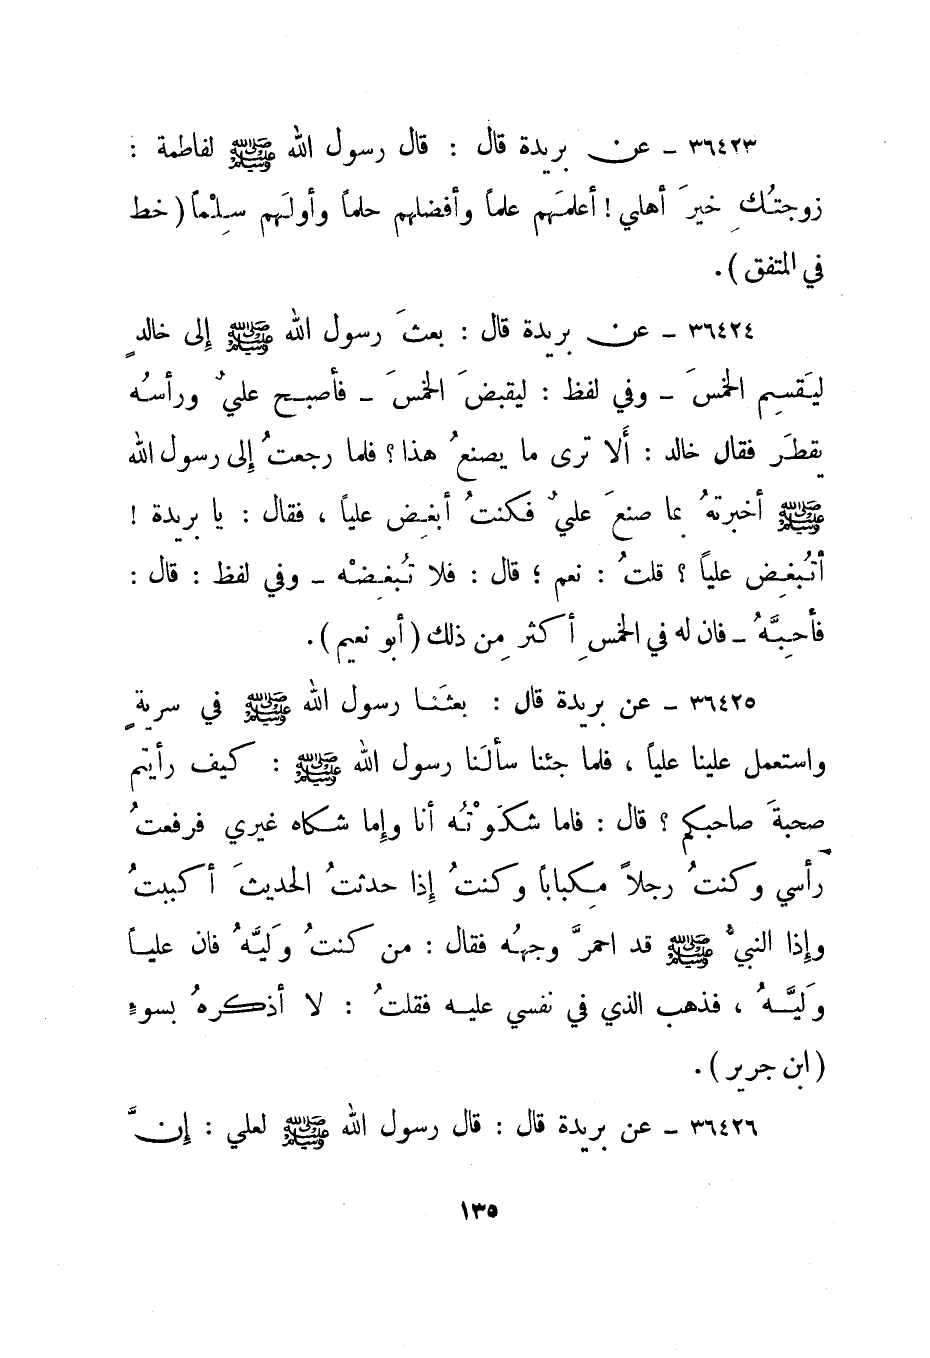 ٣٦٤٢٣ - عن بريدة قال : قال رسول الله ﷺ لفاطمة :
زوجتُكِ خيرَ أهلي ! أعلمَهم علماً وأفضلهم حلماً وأولَهم سلْماً ( خط
في المتفق ) .
٣٦٤٢٤ - عن بريدة قال : بعثَ رسول الله ﷺ إِلى خالدٍ
ليَقسِم الخمسَ - وفي لفظ : ليقبضَ الخمسَ - فأصبح عليٌ ورأسُه
يقطرَ فقال خالد : أَلا ترى ما يصنعُ هذا ؟ فلما رجعتُ إِلى رسول الله
ﷺ أخبرتهُ بما صنعَ عليٌ فكنتُ أبغِض علياً ، فقال : يا بريدة !
أتُبغِض علياً ؟ قلتُ : نعم ؛ قال : فلا تُبغِضْه - وفي لفظ : قال :
فأحِبَّهُ - فان له في الخمسِ أكثر مِن ذلك ( أبو نعيم ) .
٣٦٤٢٥ - عن بريدة قال : بعثَنا رسول الله ﷺ في سريةٍ
واستعمل علينا علياً ، فلما جئنا سألَنا رسول الله ﷺ : كيف رأيتم
صحبةَ صاحبكم ؟ قال : فاما شكَوْتُه أنا وإِما شكاه غيري فرفعتُ
رأسي وكنتُ رجلاً مِكباباً وكنتُ إِذا حدثتُ الحديثَ أكببتُ
وإِذا النبيُّ ﷺ قد احمرَّ وجهُه فقال : من كنتُ وَليَّهُ فان علياً
وَليَّهُ ، فذهب الذي في نفسي عليه فقلتُ : لا أذكرهُ بسوءٍ
( ابن جرير ) .
٣٦٤٢٦ - عن بريدة قال : قال رسول الله ﷺ لعلي : إِنَّ
١٣٥